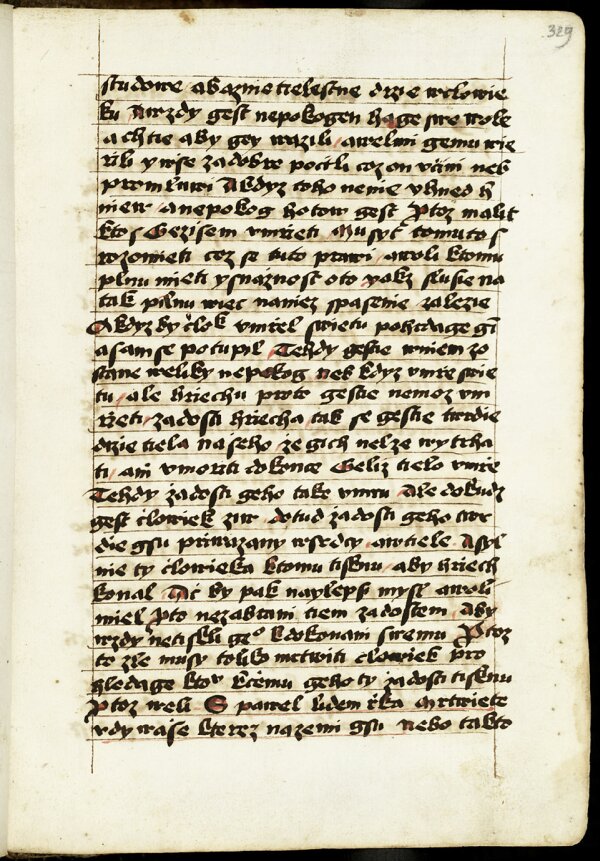 329
studowe abaznie tielestne drzie wclowie
ku Awzdy gest nepokogen hage swe wole
a chtie aby gey wazili awelmi gemu wie
rili y wse zadobre poctli coz on vcini neb
promluwi A kdyz toho nenie vhned h
niew anepokog hotow gest Protoz malit
kto s Gezisem vmrieti Musyt tomuto s
rozomieti coz se tuto prawi awoli ktomu
plnu mieti y snaznost oto yakz slusie na
tak pilnu wiec naniez spasenie zalezie
A kdyz by clok vmrel swietu pohrdage gi
a sam se potupil Tehdy gestie wniem zo
stane weliky nepokog neb kdyz vmre swie
tu ale hriechu proto gestie nemoz vm
rzieti zadosti hriecha tak se gestie twrdie
drzie tiela naseho ze gich nelze wytrha
ti ani vmoriti dokonce Geliz tielo vmre
Tehdy zadosti geho take vmru Ale dokudz
gest clowiek ziw dotud zadosti geho twr
die gsu priwazany wsrdcy awtiele A syl
nie ty clowieka ktomu tisknu aby hriech
konal Ac by pak nayleps mysl awoli
miel Proto nezabrani tiem zadostem Aby
wzdy netiskli geo kdokonani swemu Protoz
to zle musy toliko mrtwiti clowiek pro
hledage ktoz kcemu geho ty zadosti tisknu
Protoz weli S pawel lidem rzka Mrtwiete
vdy wase kterez nazemi gsu nebo takto